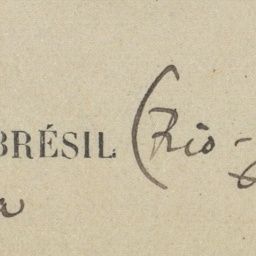 BRÉSIL (Rio-